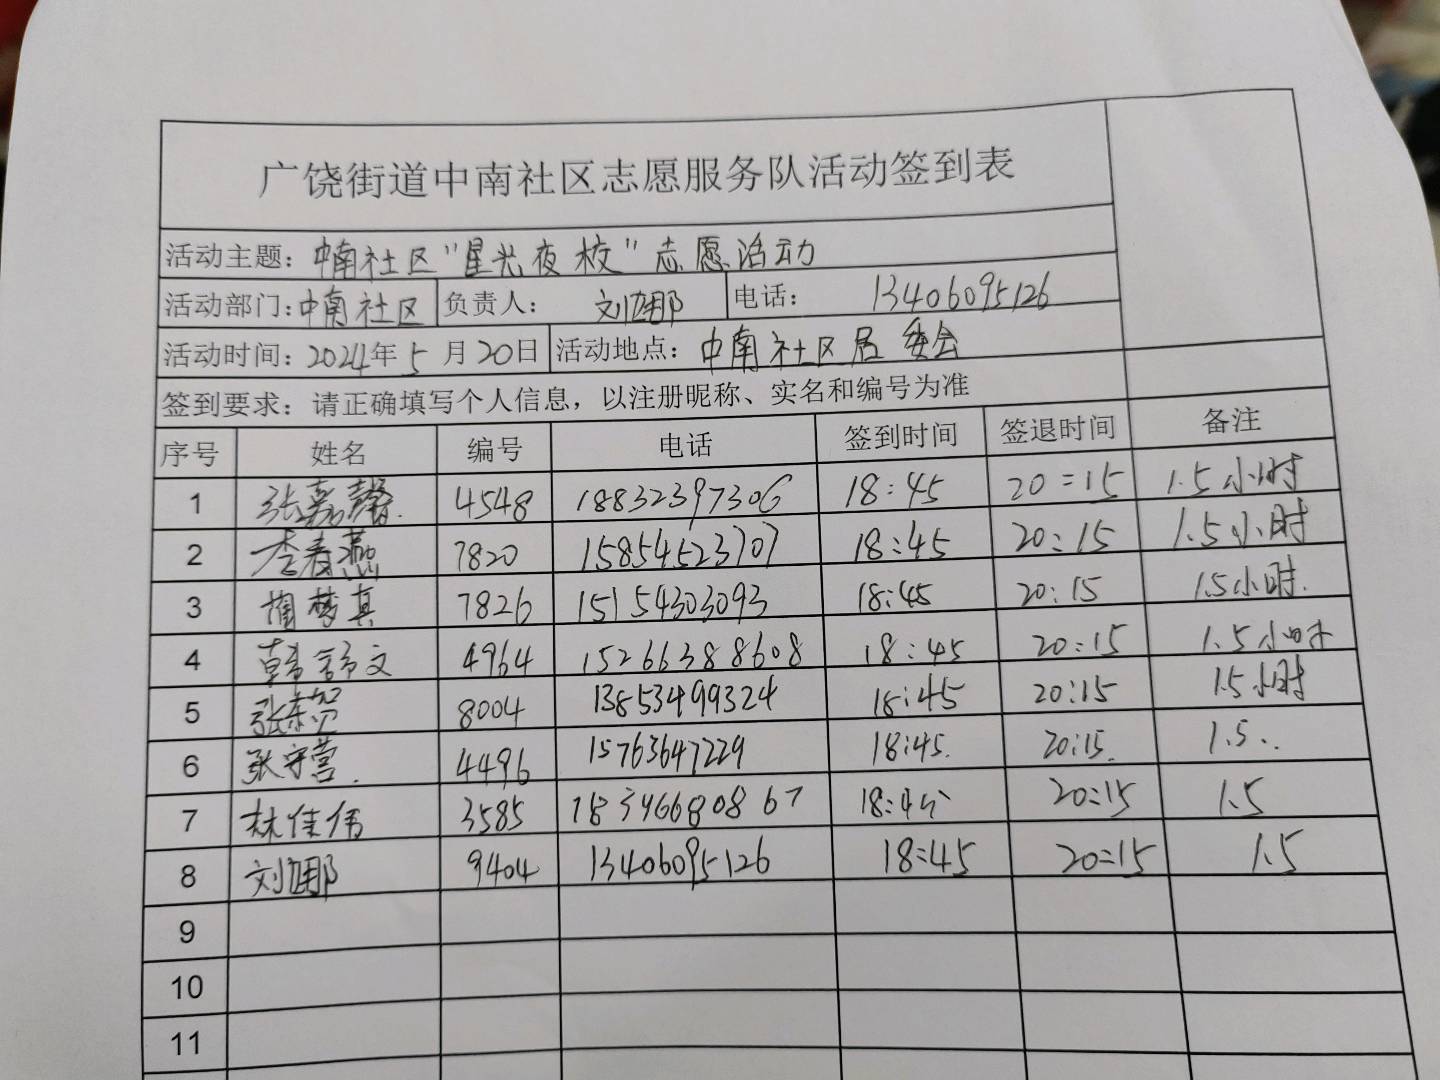 广饶街道中南社区志愿服务队活动签到表
活动主题：中南社区“星光夜校”志愿活动
活动部门：中南社区 负责人： 刘娜 电话： 13406095126
活动时间：2024年5月20日 活动地点：中南社区居委会
签到要求：请正确填写个人信息，以注册昵称、实名和编号为准
序号 姓名 编号 电话 签到时间 签退时间 备注
1 张嘉馨 4548 18832397306 18:45 20:15 1.5小时
2 李春燕 7820 15854523707 18:45 20:15 1.5小时
3 梦真 7826 15154303093 18:45 20:15 1.5小时.
4 韩文 4964 15266388608 18:45 20:15 1.5小时
5 张 8004 13853499324 18:45 20:15 1.5小时
6 张守营. 4496 15763647229 18:45. 20:15. 1.5..
7 林佳伟 3585 18346680867 18:45 20:15 1.5
8 刘娜 9404 13406095126 18:45 20:15 1.5
9
10
11